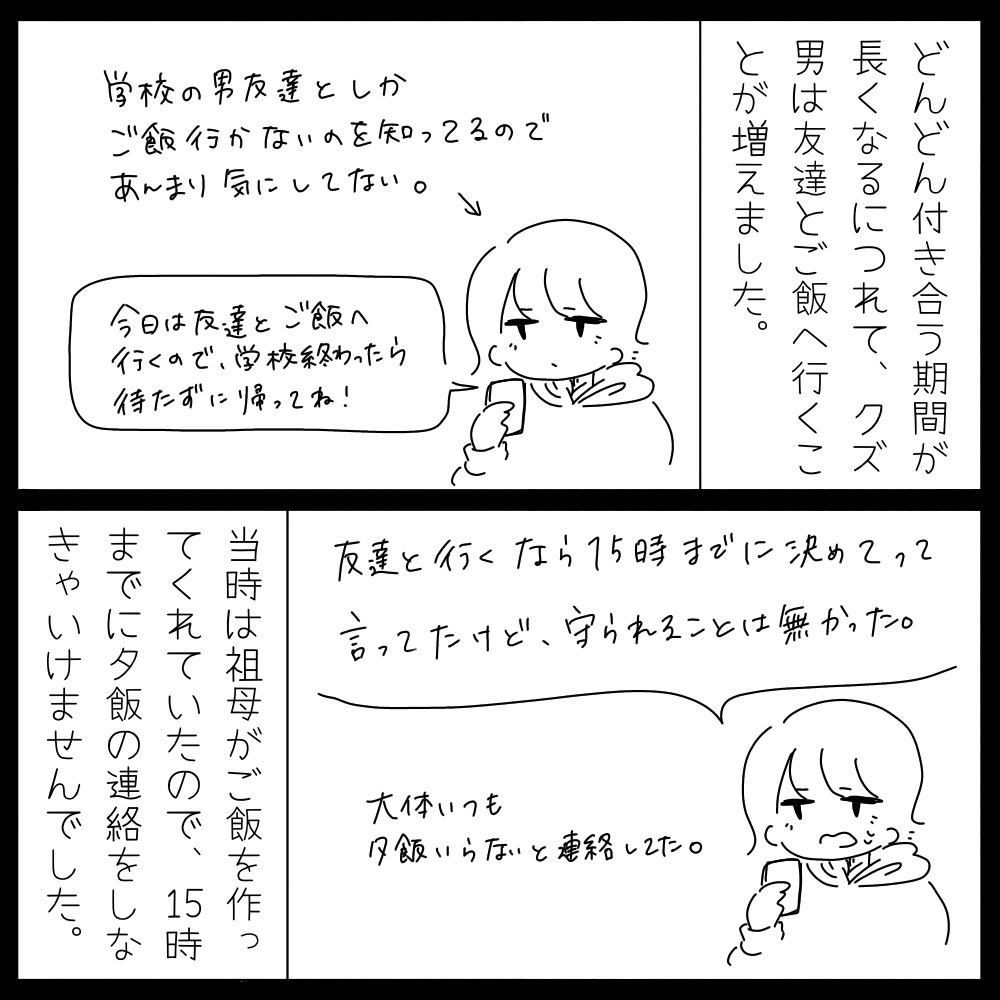 どんどん付き合う期間が
長くなるにつれて、クズ
男は友達とご飯へ行くこ
とが増えました。
学校の男友達としか
ご飯行かないのを知ってるので
あんまり気にしてない。
今日は友達とご飯へ
行くので、学校終わったら
待たずに帰ってね!
友達と行くなら15時までに決めてって
言ってたけど、守られることは無かった。
大体いつも
夕飯いらないと連絡してた。
当時は祖母がご飯を作っ
てくれていたので、15時
までに夕飯の連絡をしな
きゃいけませんでした。